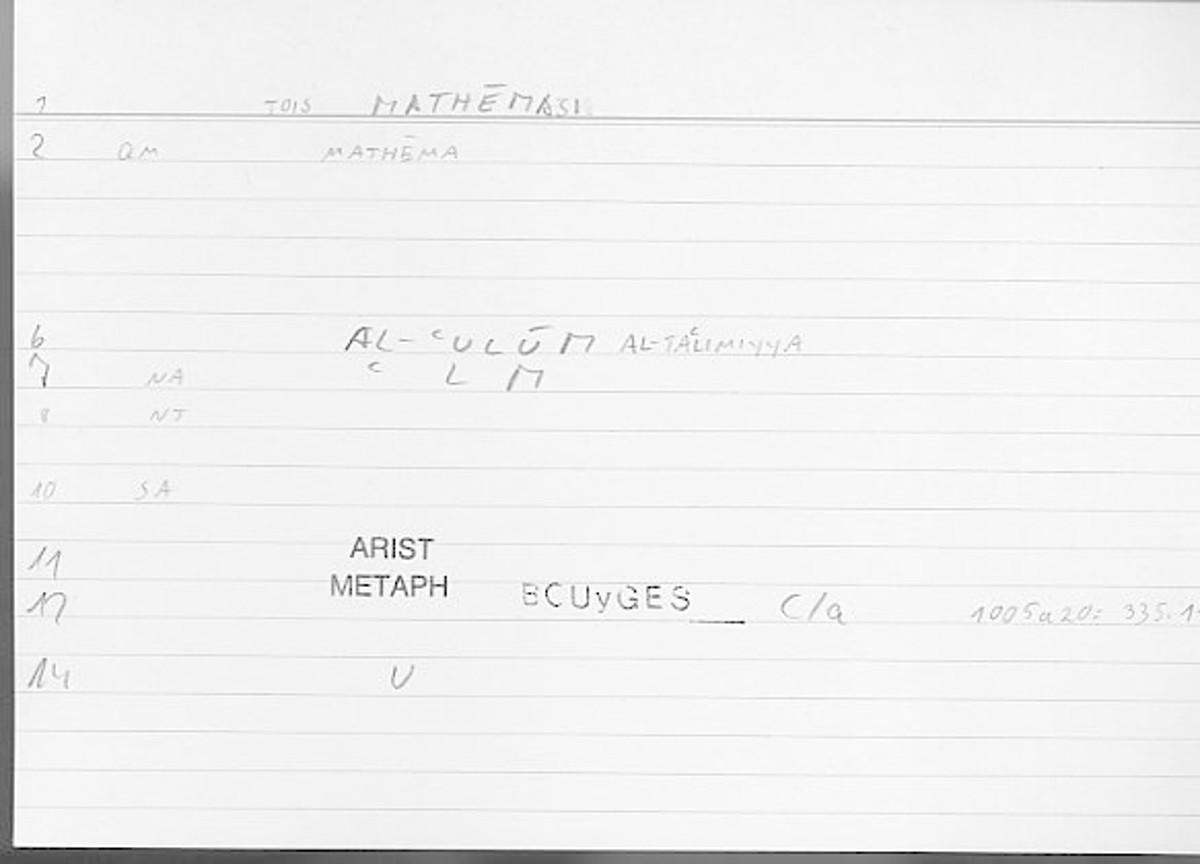 1 TOIS MATHĒMASI
2 QM MATHĒMA
6 AL-ʿULŪM AL-TAʿLIMIYYA
7 NA ʿ L M
8 NJ
10 SA
11 ARIST
METAPH
12 BOUyGES__ C/a 1005a20: 335.1
14 U